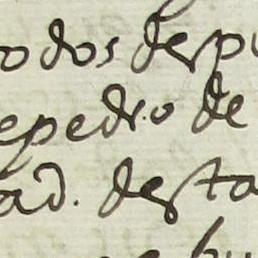 odos despu
epedro de
ad. desta